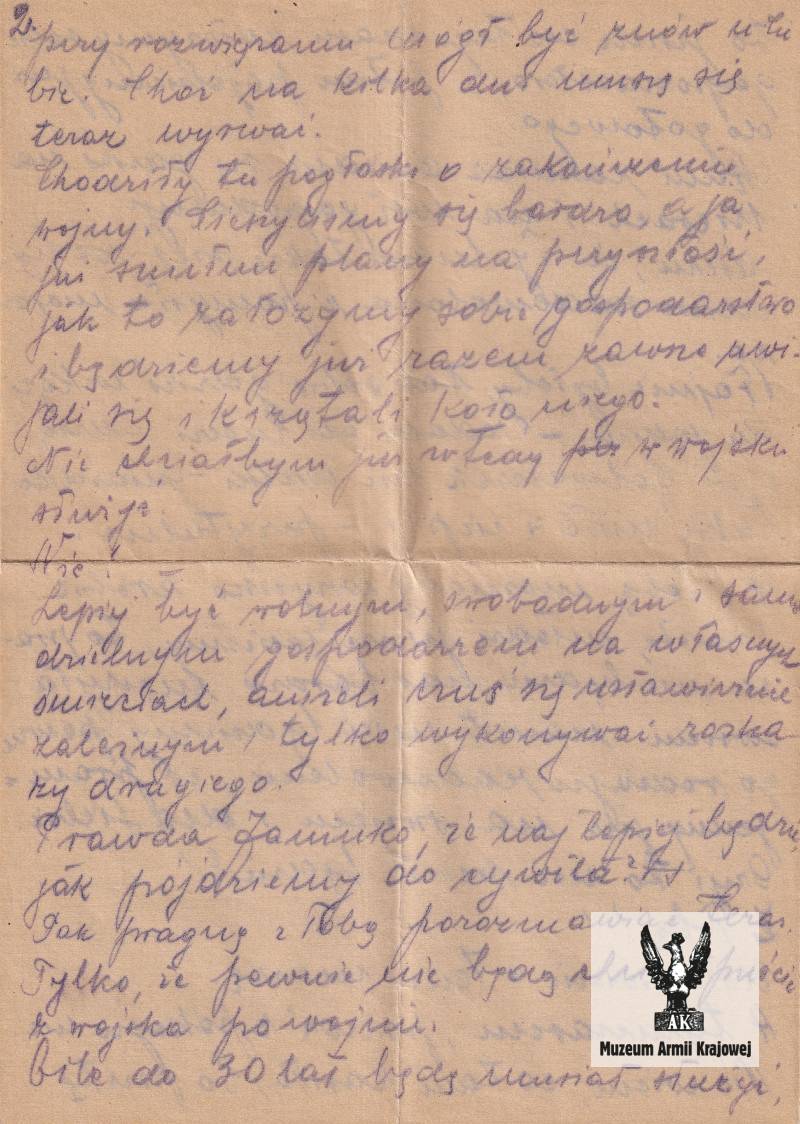 2.
przy rozwiązaniu mógł być znów u Cie
bie. Choć na kilka dni muszę się
teraz wyrwać.
Chodziły tu pogłoski o zakończeniu
wojny. Cieszyliśmy się bardzo, a ja
już snułem plany na przyszłość,
jak to założymy sobie gospodarstwo
i będziemy już razem zawsze uwi-
jali się i krzątali koło niego.
Nie chciałbym już wtedy w wojsku
służyć.
Nie!
Lepiej być wolnym, swobodnym i samo
dzielnym gospodarzem na własnych
śmieciach, aniżeli czuć się ustawicznie
zależnym i tylko wykonywać rozka-
zy drugiego.
Prawda Janinko, że najlepiej będzie,
jak pójdziemy do cywila?
Tak pragnę z Tobą porozmawiać teraz.
Tylko, że pewnie nie będą chcieli puścić
z wojska po wojnie.
Bite do 30 lat będę musiał służyć,
AK
Muzeum Armii Krajowej